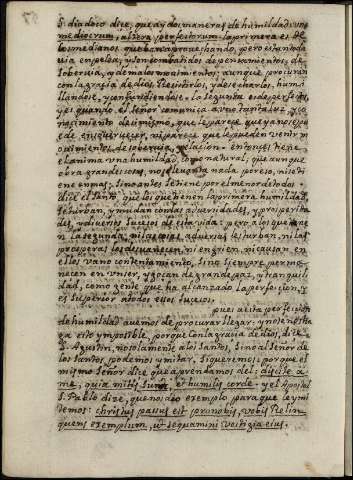 S. diadoco dize, que ay dos maneras de humildad: una
mediocrum, altera perfectorum. la primera es de
los medianos que ban aprovechando, pero estan toda
via en pelea, y son combatidos de pensamientos, de
soberuia, y de malos mouimientos; aunque procuran
con la gracia de dios, resistirlos, y desecharlos, humi
llandose, y confundiendose. la segunda es de perfectos,
y es quando el señor comunica a uno tanta luz, y co
nocimiento de si mismo, que le parece que ya no se pue
de ensoberuecer, ni parece que le pueden venir m
ouimientos, de soberuia, y elacion. entonces tiene
el anima una humildad, como natural, que aunque
obra grandes cosas, no se leuanta nada por eso, ni se ti
ene en mas; sino antes se tiene por el menor de todos.
dize el santo, que los que tienen la primera humildad,
se turban, y mudan con las aduersidades, y prosperida
des, y diuersos sucesos de esta vida; pero a los que tiene
n la segunda, ni las cosas aduersas les turban, ni las
prosperas los desuanecen, ni engrien, ni causan en
ellos vano contentamiento, sino siempre perma
necen en un ser, y gozan de grande paz, y tranquili
dad, como gente que ha alcanzado la perfecion, y
es superior a todos esos sucesos.
pues a esta perfecion
de humildad auemos de procurar llegar. y no se nos ha
ga esto ymposible, porque con la gracia de dios, dize
S. Agustin, no solamente a los Santos, sino al Señor de
los santos podemos ymitar, si queremos: porque el
mismo Señor dize que aprendamos del: discite a
me, quia mitis sum, et humilis corde. y el Apostol
S. Pablo dize, que nos dio exemplo para que le ymi
temos: christus passus est pro nobis, vobis relin
quens exemplum, ut sequamini vestigia eius.